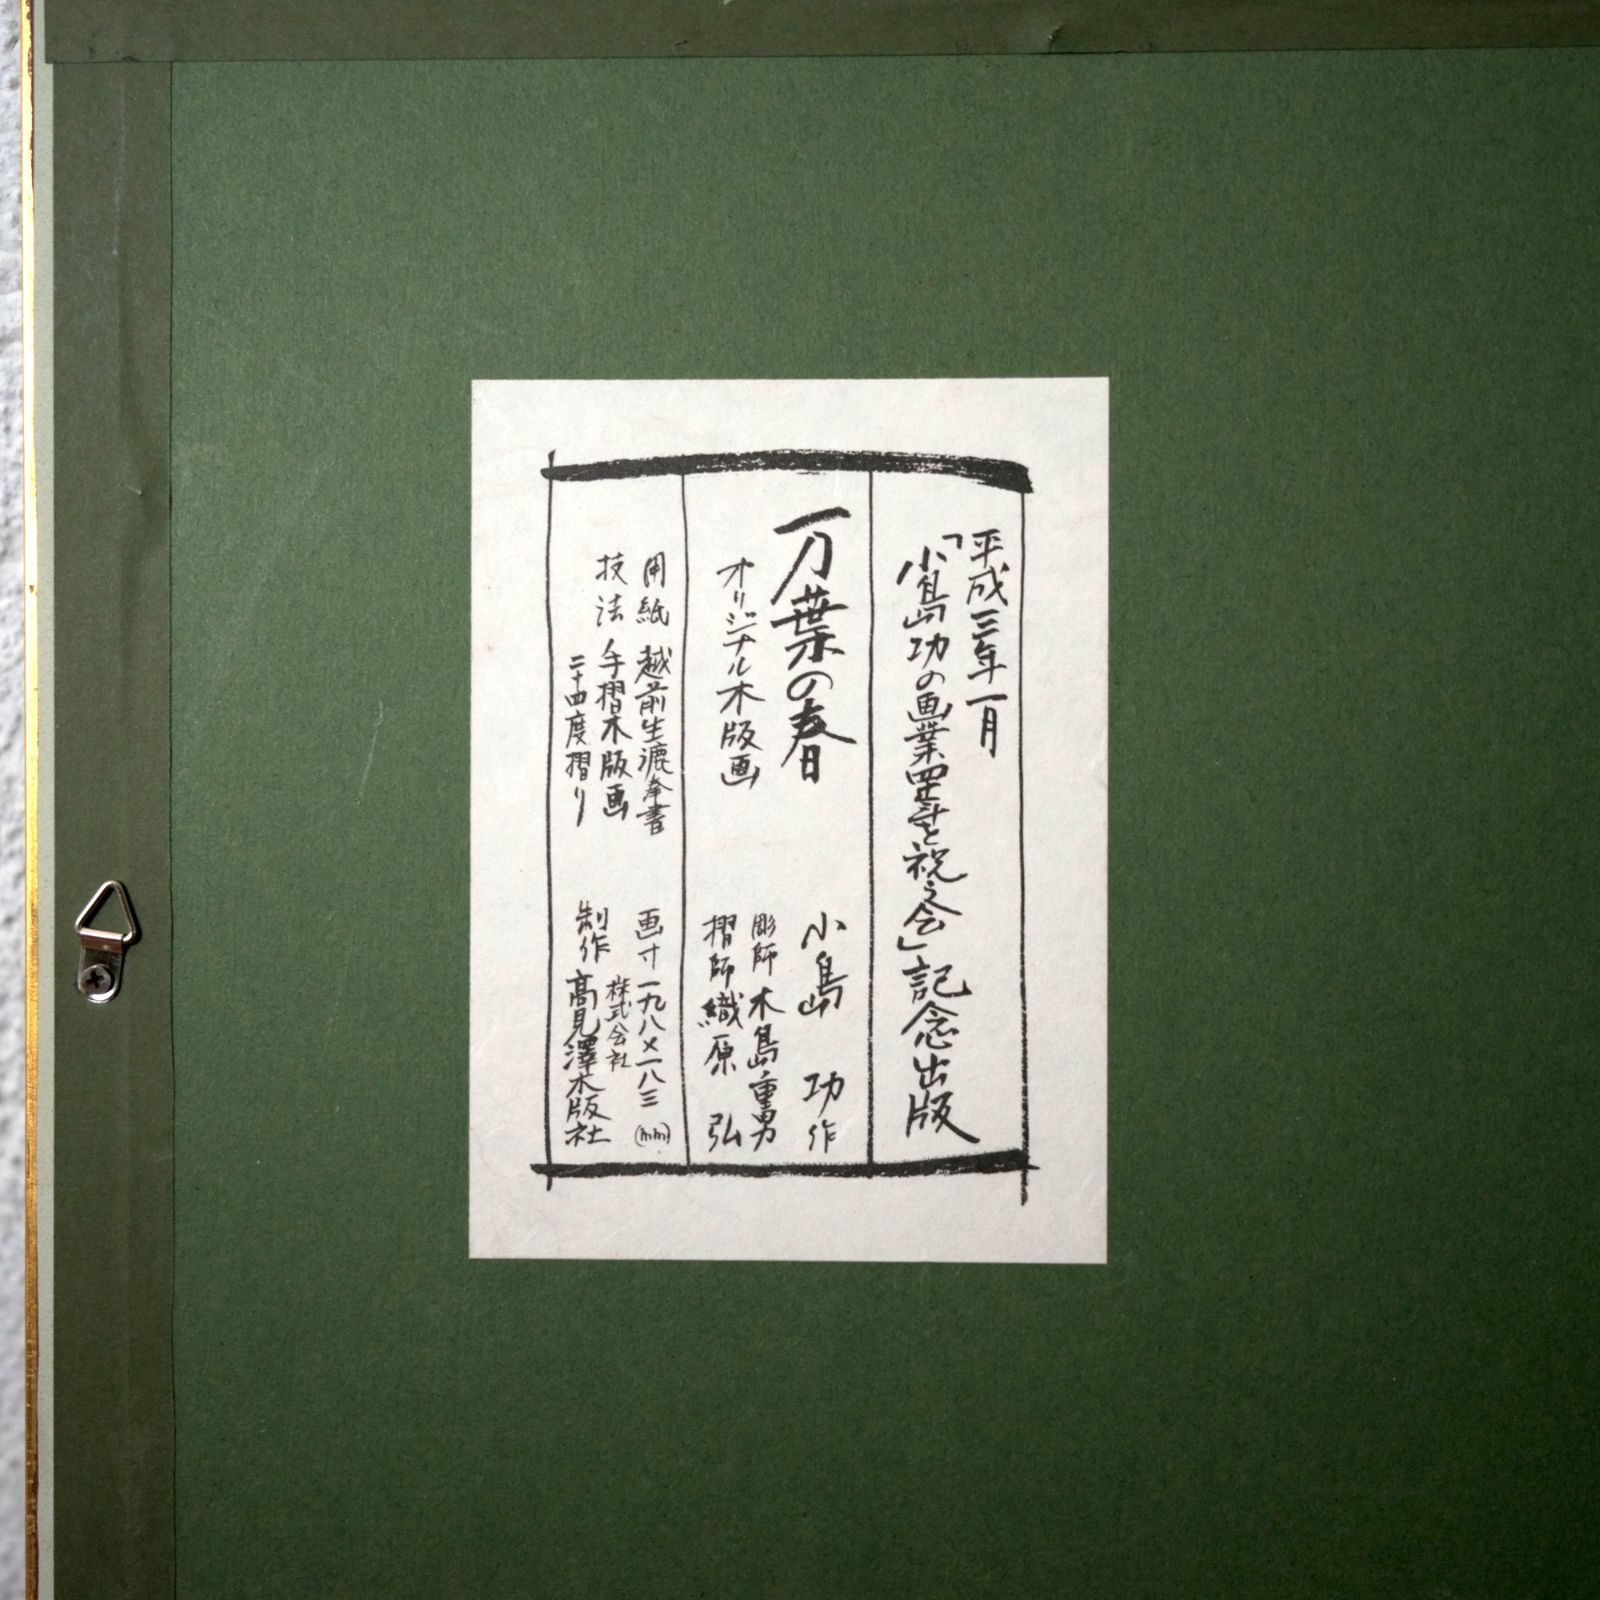 平成三年一月
「小島功の画業四十年を祝う会」記念出版
万葉の春
オリジナル木版画
小島 功 作
彫師 木島重男
摺師 織原 弘
用紙 越前生漉奉書
技法 手摺木版画
二十四度摺り
画寸 一九八×一八三(mm)
株式会社
制作 高見澤木版社